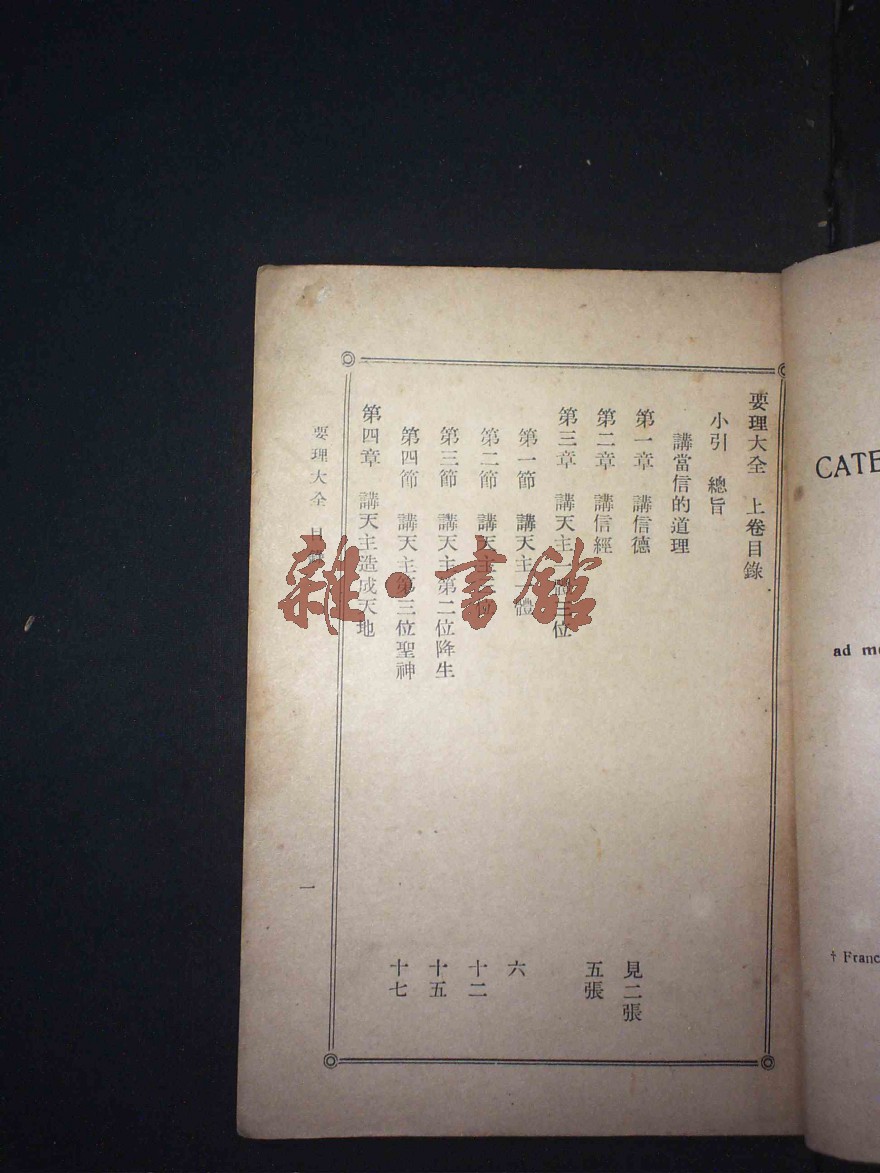 要理大全 上卷目錄
小引 總旨
講當信的道理
第一章 講信德 見二張
第二章 講信經 五張
第三章 講天主一體三位
第一節 講天主一體 六
第二節 講天主三位 十二
第三節 講天主第二位降生 十五
第四節 講天主第三位聖神 十七
第四章 講天主造成天地
要理大全 目錄
一
雜·書館
CATE
ad m
† Franc